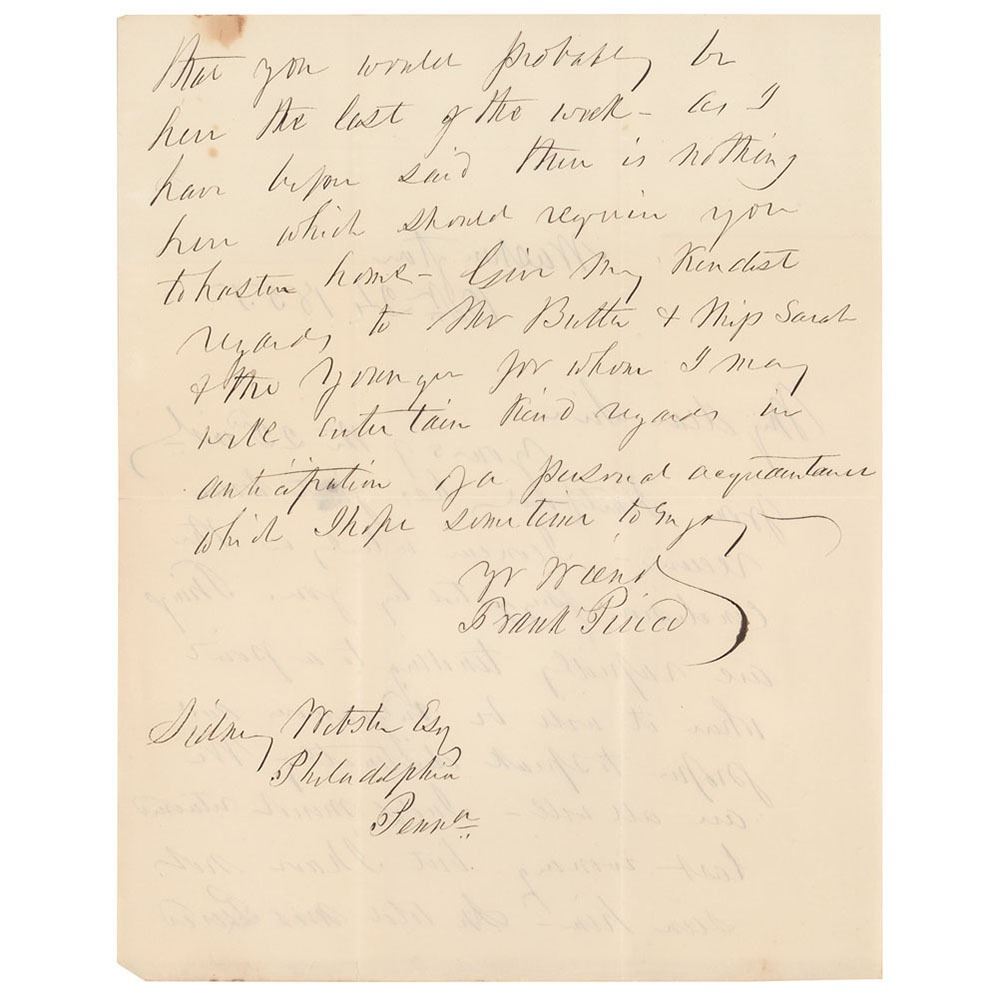 that you would probably be
here the last of the week – as I
have before said there is nothing
here which should require you
to hasten home – Give my kindest
regards to Mr Butler & Miss Sarah
& the Younger for whom I may
well entertain kind regards in
anticipation of a personal acquaintance
which I hope sometime to enjoy –
Yr friend
Frank Pierce
Sidney Webster Esq
Philadelphia
Penna